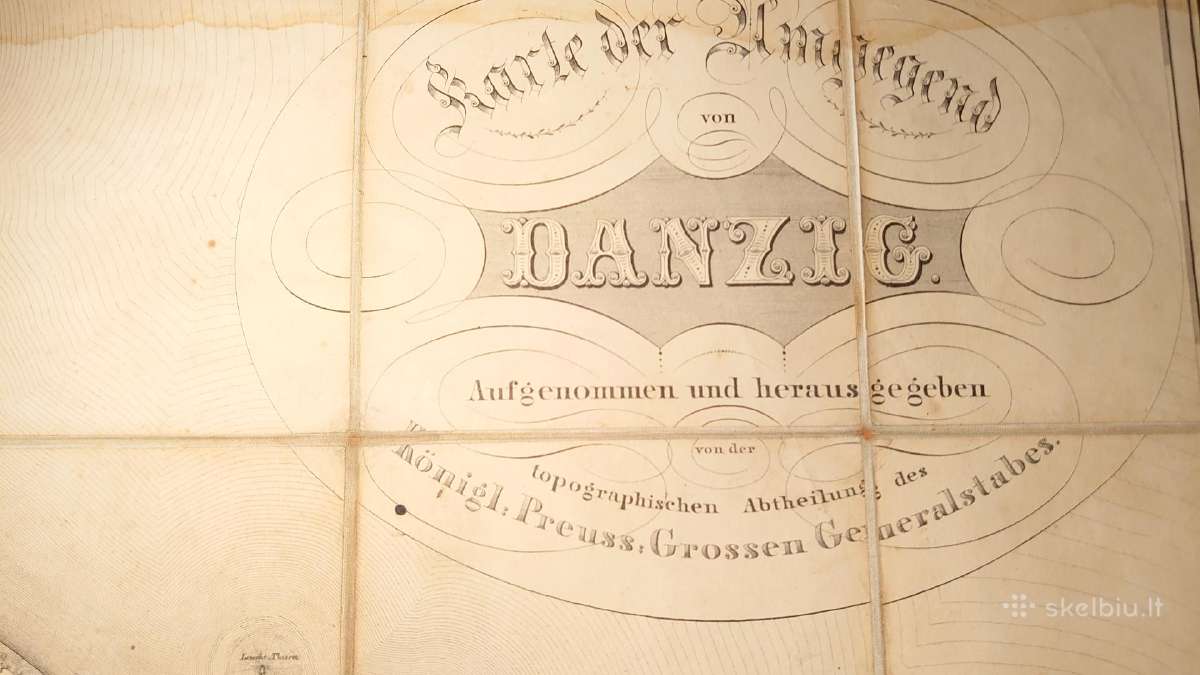 Karte der Umgegend
von
DANZIG.
Aufgenommen und herausgegeben
von der
topographischen Abtheilung des
Königl: Preuss: Grossen Generalstabes.
Leucht-Thurm
skelbiu.lt